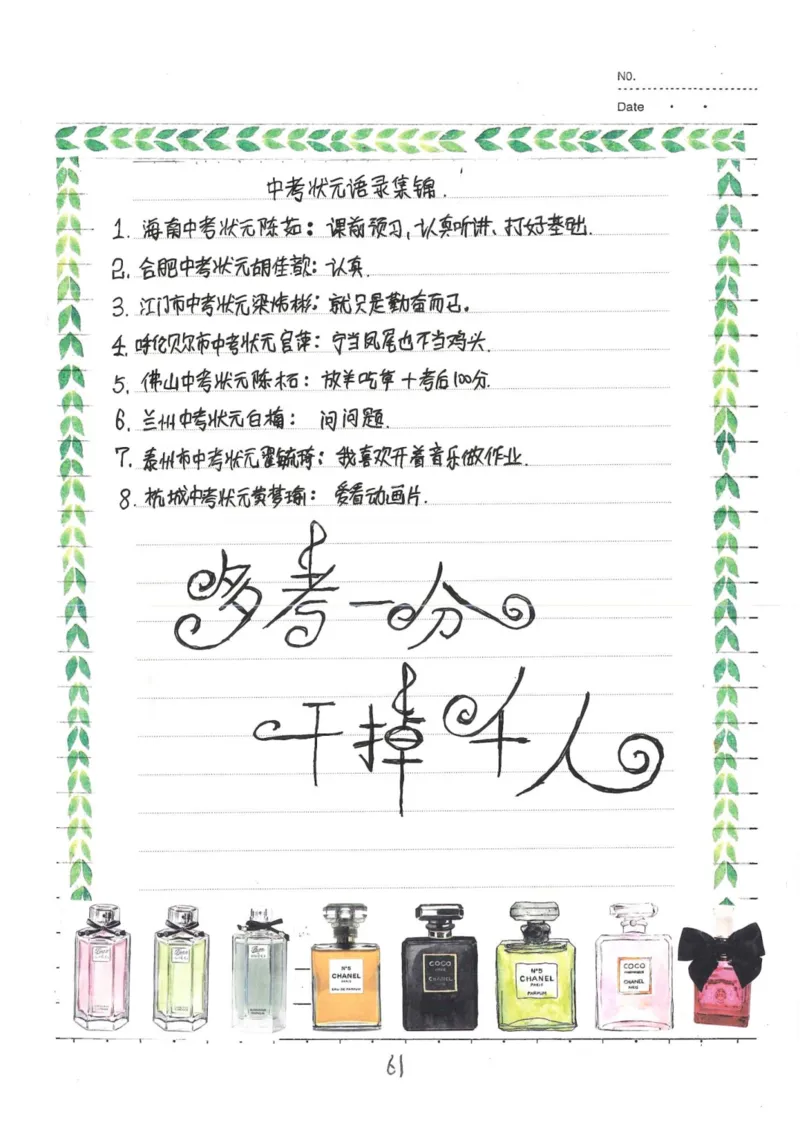 NO.
Date
中考状元语录集锦.
1. 海南中考状元陈茹：课前预习,认真听讲、打好基础.
2. 合肥中考状元胡佳歆：认真.
3. 江门市中考状元梁炜彬：就只是勤奋而已。
4. 呼伦贝尔市中考状元官萍：宁当凤尾也不当鸡头.
5. 佛山中考状元陈柘：放羊吃草+考后100分.
6. 兰州中考状元白梅： 问问题.
7. 泰州市中考状元翟毓琦：我喜欢开着音乐做作业.
8. 杭城中考状元黄梦瑜： 爱看动画片.
多考一分
干掉千人
N°5
CHANEL
PARIS
EAU DE PARFUM
COCO
CHANEL
PARIS
N°5
CHANEL
PARIS
PARFUM
COCO
CHANEL
PARIS
61